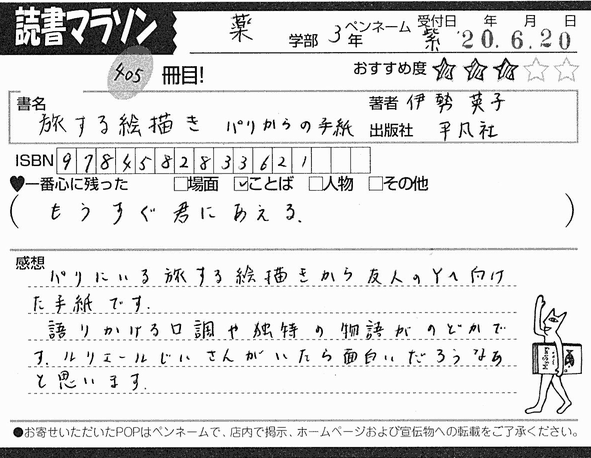 読書マラソン
薬 学部 3年 ペンネーム 紫 受付日 年 月 日 '20.6.20
405 冊目! おすすめ度 ★★★☆☆
書名 旅する絵描き パリからの手紙 著者 伊勢 英子
出版社 平凡社
ISBN 9784582833621
♥一番心に残った □場面 ☑ことば □人物 □その他
(もうすぐ君にあえる.)
感想
パリにいる旅する絵描きから友人のYへ向け
た手紙です.
語りかける口調や独特の物語がのどかで
す.ルリエールじいさんがいたら面白いだろうなあ
と思います.
●お寄せいただいたPOPはペンネームで、店内で掲示、ホームページおよび宣伝物への転載をご了承ください。